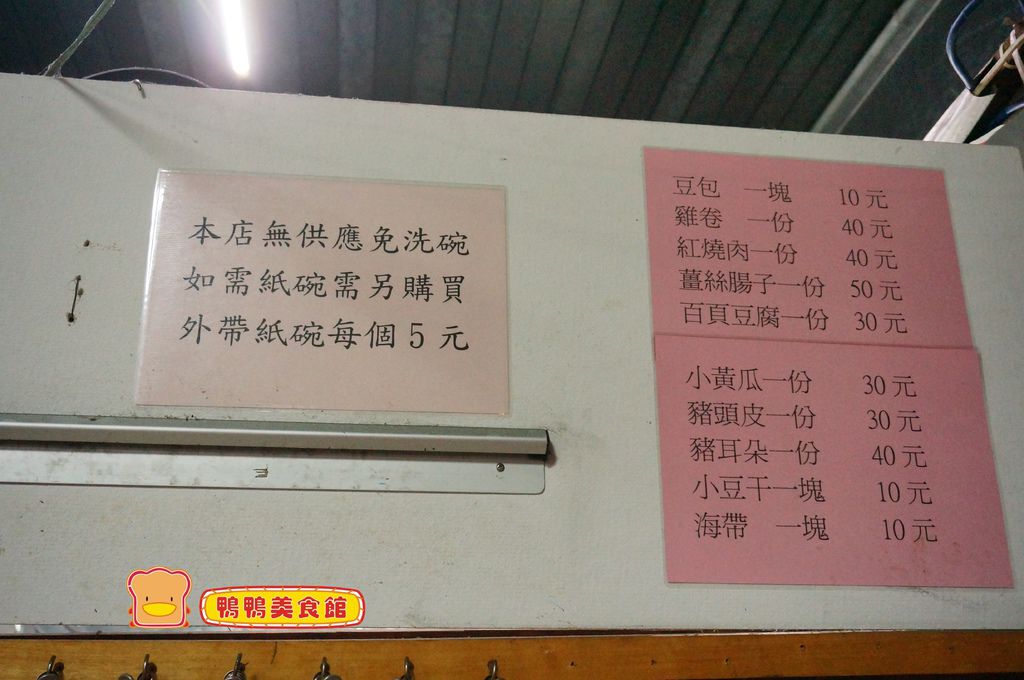 本店無供應免洗碗
如需紙碗需另購買
外帶紙碗每個5元
豆包 一塊 10元
雞卷 一份 40元
紅燒肉一份 40元
薑絲腸子一份 50元
百頁豆腐一份 30元
小黃瓜一份 30元
豬頭皮一份 30元
豬耳朵一份 40元
小豆干一塊 10元
海帶 一塊 10元
鴨鴨美食館